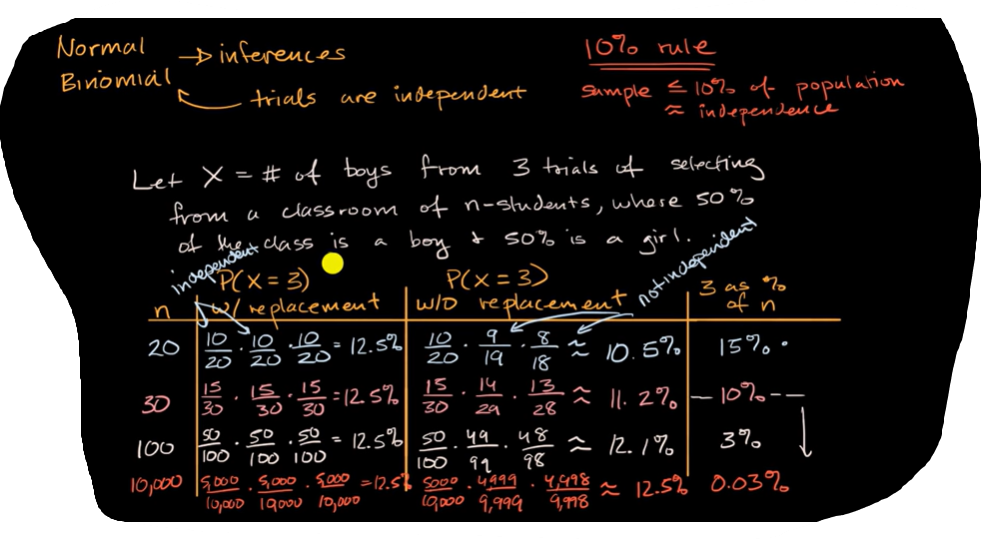 Normal → inferences
10% rule
Binomial
trials are independent
sample ≤ 10% of population
≈ independence
Let X = # of boys from 3 trials of selecting
from a classroom of n-students, where 50%
of the class is a boy & 50% is a girl.
independent
not independent
P(X = 3) P(X = 3) 3 as %
n w/ replacement w/o replacement of n
20 10/20 · 10/20 · 10/20 = 12.5% 10/20 · 9/19 · 8/18 ≈ 10.5% 15%
30 15/30 · 15/30 · 15/30 = 12.5% 15/30 · 14/29 · 13/28 ≈ 11.2% 10%
100 50/100 · 50/100 · 50/100 = 12.5% 50/100 · 49/99 · 48/98 ≈ 12.1% 3%
10,000 5,000/10,000 · 5,000/10,000 · 5,000/10,000 = 12.5% 5000/10,000 · 4,999/9,999 · 4,998/9,998 ≈ 12.5% 0.03%